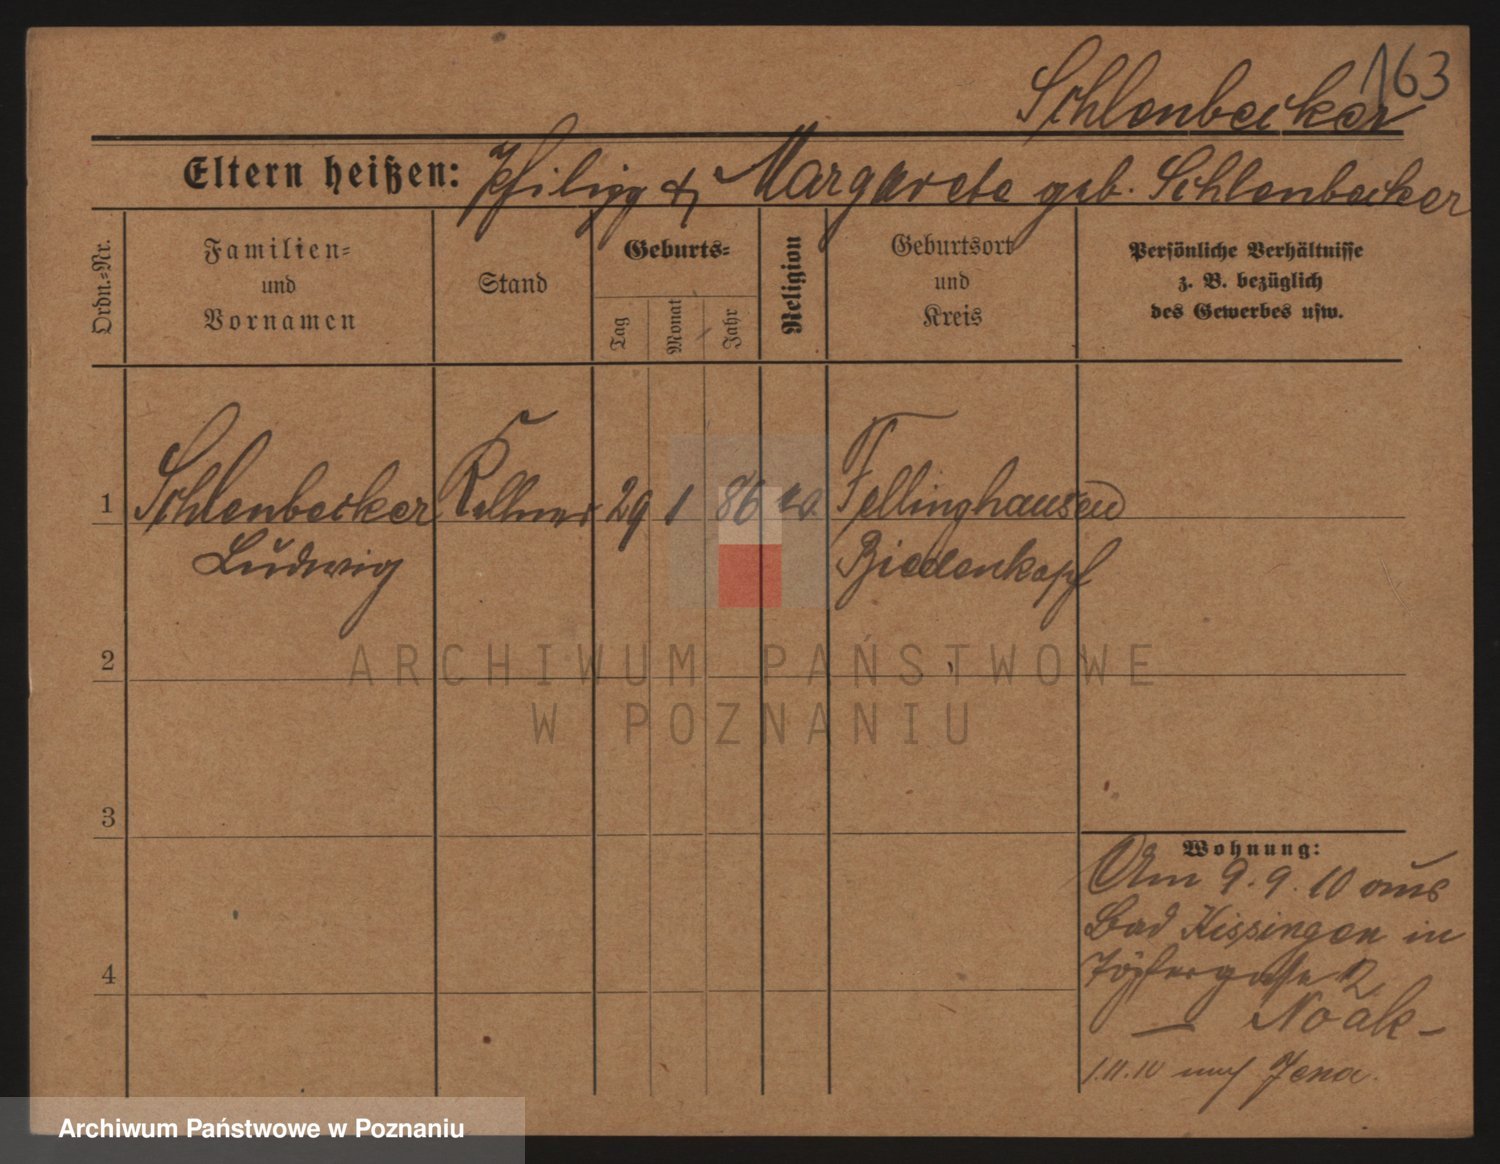 163
Schlenbecker
Eltern heißen: Philipp & Margarete geb. Schlenbecker
Ordn.=Nr.
Familien=
und
Vornamen
Stand
Geburts=
Tag
Monat
Jahr
Religion
Geburtsort
und
Kreis
Persönliche Verhältnisse
z. B. bezüglich
des Gewerbes usw.
1 Schlenbecker Kellner 29 1 86 ev. Fellinghausen
Ludwig Biedenkopf
2
ARCHIWUM PAŃSTWOWE
W POZNANIU
3
Wohnung:
Am 9.9.10 aus
Bad Kissingen in
Töpfergasse 2
4
— Noak –
1.11.10 nach Jena.
Archiwum Państwowe w Poznaniu